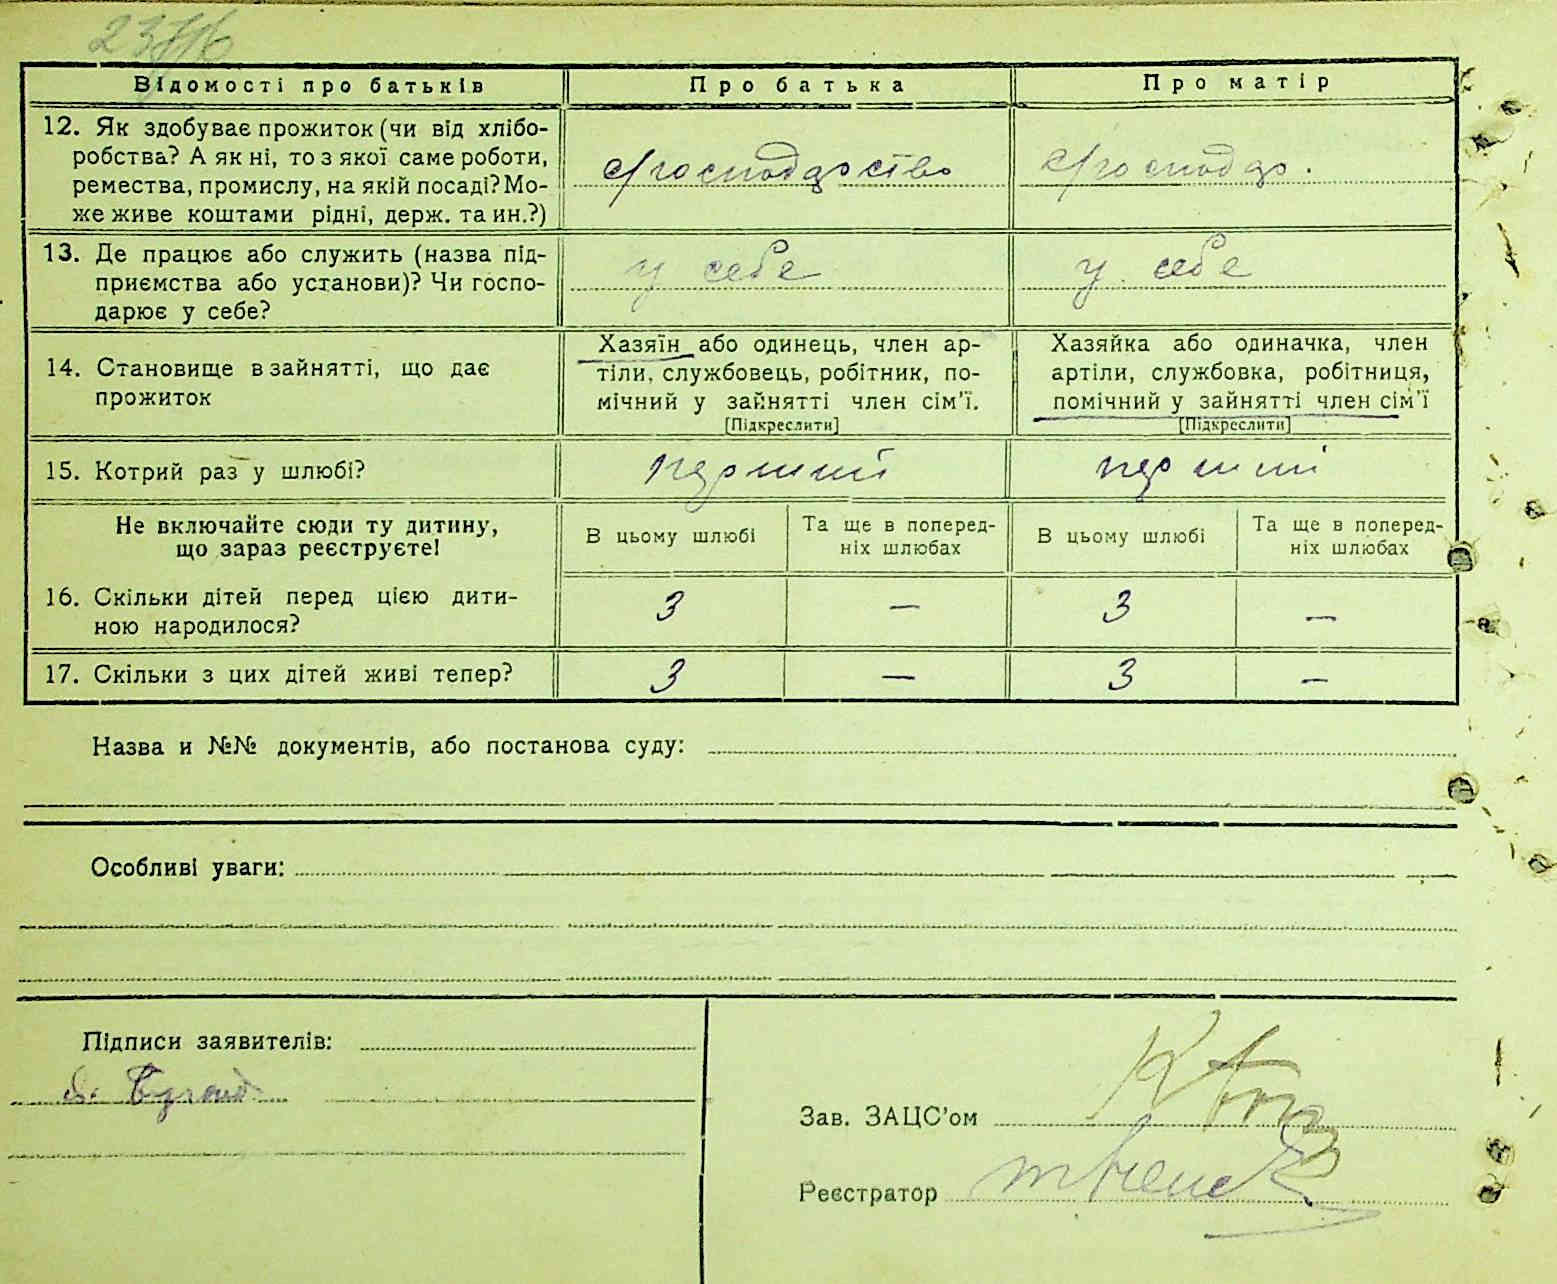 Відомості про батьків
Про батька
Про матір
12. Як здобуває прожиток (чи від хлібо-
робства? А як ні, то з якої саме роботи,
ремества, промислу, на якій посаді? Мо-
же живе коштами рідні, держ. та ин.?)
с/господарство
с/господар.
13. Де працює або служить (назва під-
приємства або установи)? Чи госпо-
дарює у себе?
у себе
у себе
14. Становище в зайнятті, що дає
прожиток
Хазяїн або одинець, член ар-
тіли, службовець, робітник, по-
мічний у зайнятті член сім'ї.
[Підкреслити]
Хазяйка або одиначка, член
артіли, службовка, робітниця,
помічний у зайнятті член сім'ї
[Підкреслити]
15. Котрий раз у шлюбі?
перший
перший
Не включайте сюди ту дитину,
що зараз реєструєте!
В цьому шлюбі
Та ще в поперед-
ніх шлюбах
В цьому шлюбі
Та ще в поперед-
ніх шлюбах
16. Скільки дітей перед цією дити-
ною народилося?
3 — 3 —
17. Скільки з цих дітей живі тепер?
3 — 3 —
Назва и №№ документів, або постанова суду:
Особливі уваги:
Підписи заявителів:
Зав. ЗАЦС'ом
Реєстратор